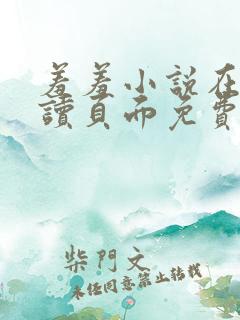 羞羞小說在
讀頁面免費
柴門文
未任同意禁止转載